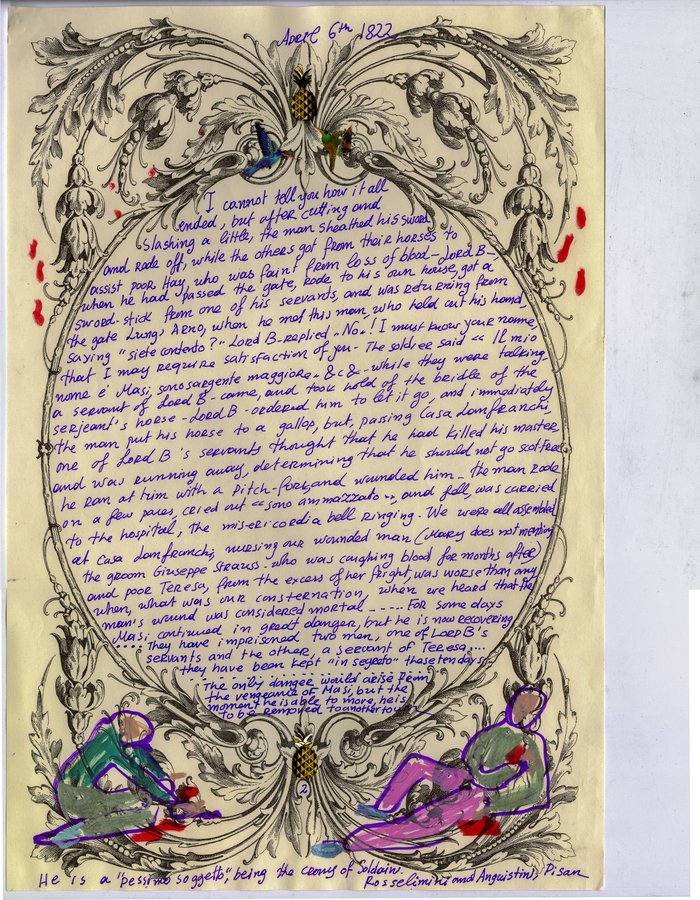 April 6th 1822
I cannot tell you how it all
ended, but after cutting and
slashing a little, the man sheathed his sword
and rode off, while the others got from their horses to
assist poor Hay, who was faint from loss of blood - Lord B-,
when he had passed the gate, rode to his own house, got a
sword-stick from one of his servants, and was returning from
the gate Lung' Arno, when he met this man, who held out his hand,
saying "siete contento?" Lord B-replied „No„! I must know your name,
that I may require satisfaction of you- The soldier said « Il mio
nome é Masi, sono sargente maggiore„ &c&- while they were talking
a servant of Lord B- came, and took hold of the bridle of the
serjeant's horse -Lord B- ordered him to let it go, and immediately
the man put his horse to a gallop, but, passing Casa Lanfranchi,
one of Lord B's servants thought that he had killed his master
and was running away, determining that he should not go scotfree
he ran at him with a pitch-fork, and wounded him - The man rode
on a few paces, cried out «sono ammazzato„, and fell, was carried
to the hospital, the misericordia bell ringing- We were all assembled
at Casa Lanfranchi, nursing our wounded man (Mary does not mention
the groom Giuseppe Strauss -who was caughing blood for months after)
and poor Teresa, from the excess of her fright, was worse than any
when, what was our consternation, when we heard that the
man's wound was considered mortal ----- For some days
Masi continued in great danger, but he is now recovering
.... They have imprisoned two men, one of LORD B's
servants and the other, a servant of Teresa,....
they have been kept "in segreto" these ten days...
The only danger would arise from
the vengeance of Masi, but the
moment he is able to move, he is
to be removed to another town
2
He is a "pessimo soggetto", being the crony of Soldain.
Rosselimini and Anguistini, Pisan